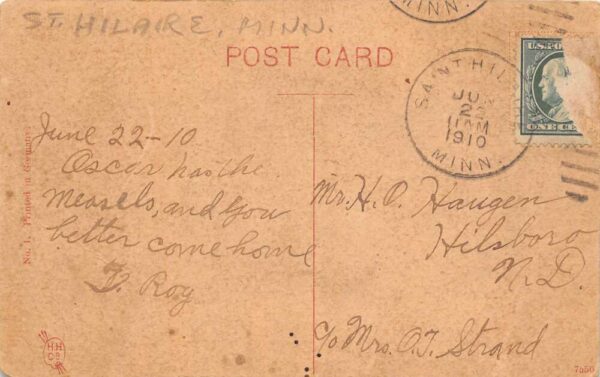 ST. HILAIRE, MINN.
MINN.
POST CARD
SAINT HIL
JUN
22
11AM
1910
MINN.
U.S. PO
ONE CE
June 22-10
Oscar has the
measels, and you
better come home
F. Roy
Mr. H. O. Haugen
Hilsboro
N.D.
c/o Mrs. O.T. Strand
No. 1. Printed in Germany
HH
CO
7550